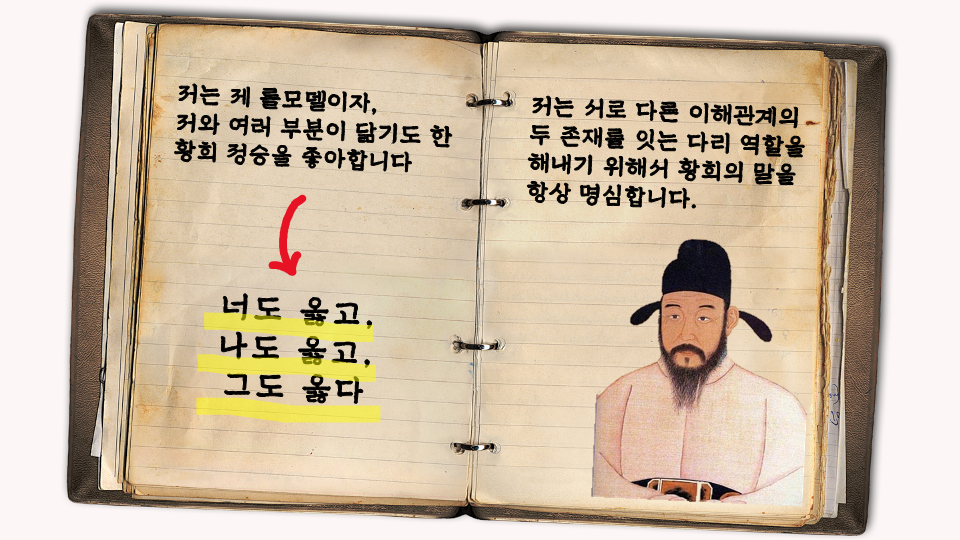 저는 제 롤모델이자,
저와 여러 부분이 닮기도 한
황희 정승을 좋아합니다
너도 옳고,
나도 옳고,
그도 옳다
저는 서로 다른 이해관계의
두 존재를 잇는 다리 역할을
해내기 위해서 황희의 말을
항상 명심합니다.